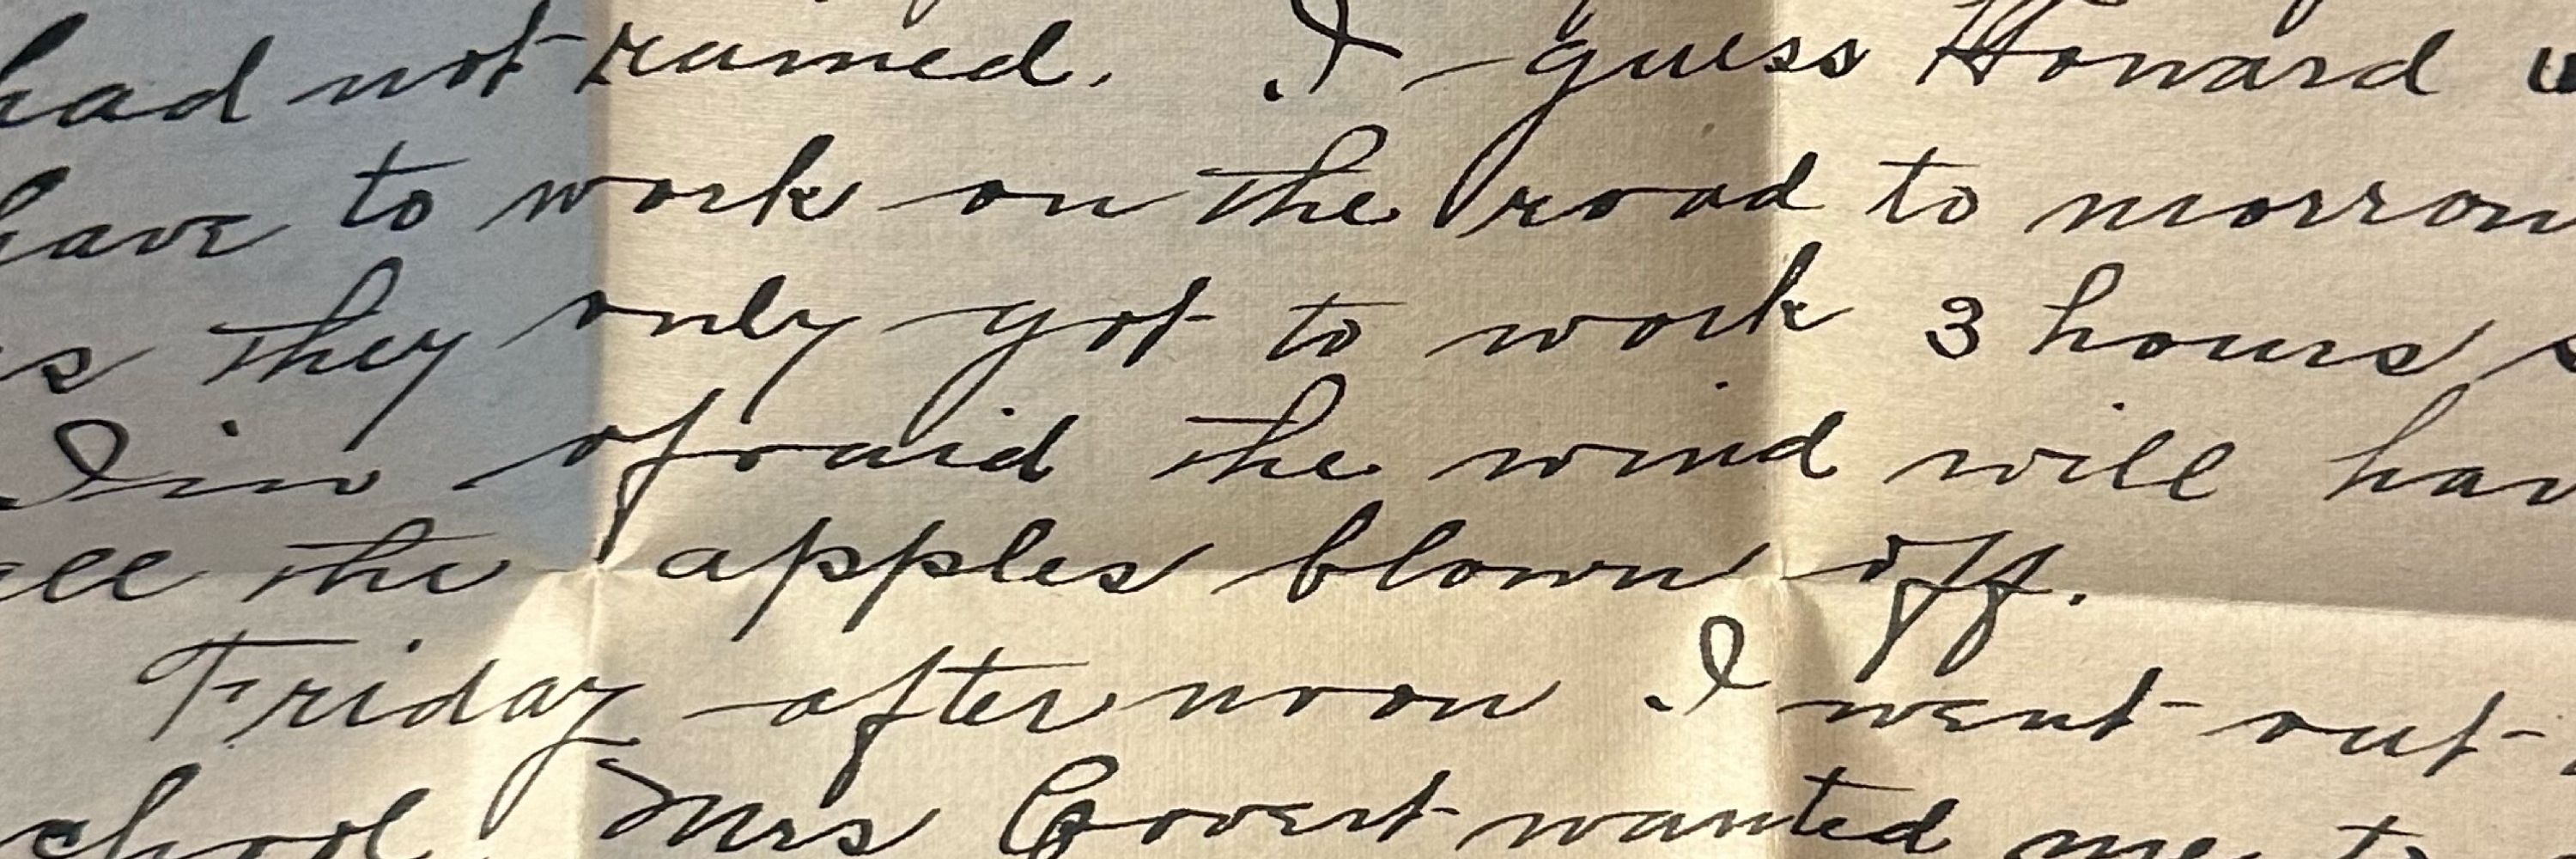 had not rained. I guess Howard
have to work on the road to morrow
s they only got to work 3 hours
I'm afraid the wind will hav
all the apples blown off.
Friday afternoon I went out
school. Mrs Covert wanted me to